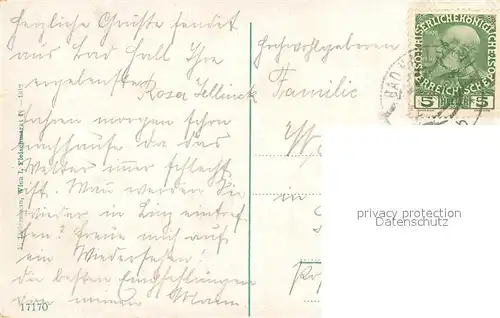 Herzliche Grüße sendet
aus Bad Hall Ihre
ergebenste
Rosa Jellinek
fahren morgen schon
nachhause da das
Wetter immer schlecht
ist. Wann werden Sie
wieder in Linz eintref-
fen? freue mich auf
ein Wiedersehen!
die besten Empfehlungen
von meinem Mann.
17170
Hochwohlgeboren
Familie
in
KAISERLICHE KÖNIGLICHE
ÖSTERREICHISCHE
5 HELLER 5
BAD
privacy protection
Datenschutz